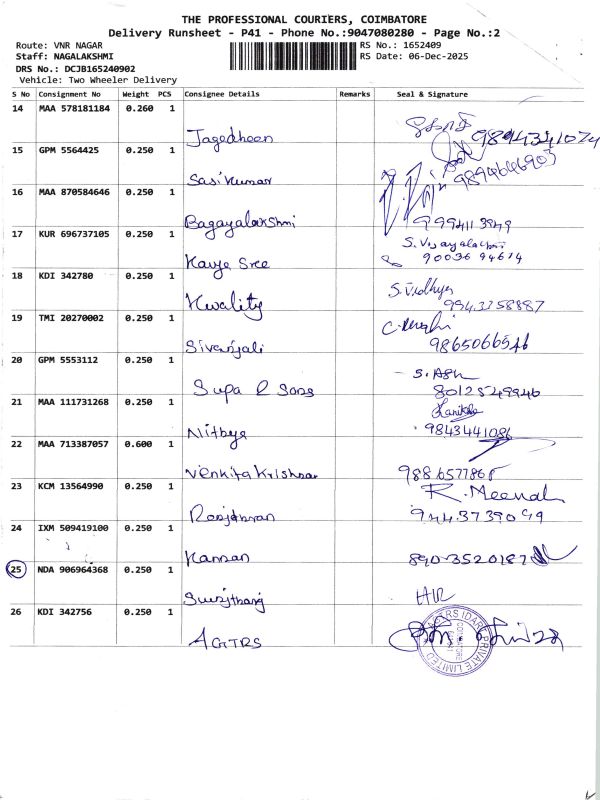 THE PROFESSIONAL COURIERS, COIMBATORE
Delivery Runsheet - P41 - Phone No.:9047080280 - Page No.:2
Route: VNR NAGAR
Staff: NAGALAKSHMI
DRS No.: DCJB165240902
Vehicle: Two Wheeler Delivery
RS No.: 1652409
RS Date: 06-Dec-2025
S No Consignment No Weight PCS Consignee Details Remarks Seal & Signature
14 MAA 578181184 0.260 1
Jagedheen 9894341074
15 GPM 5564425 0.250 1
Sasikumar 9894646903
16 MAA 870584646 0.250 1
Bagayalakshmi 9994113949
17 KUR 696737105 0.250 1
Kavye Sree S. Vijayalakshmi
90036 94614
18 KDI 342780 0.250 1
Kwality S. Vidhya
9943358887
19 TMI 20270002 0.250 1
Sivanjali 9865066546
20 GPM 5553112 0.250 1
Supa R Sons 8012549946
21 MAA 111731268 0.250 1
Nithye 9843441086
22 MAA 713387057 0.600 1
Venkita Krishnan 9886577868
23 KCM 13564990 0.250 1
R. Meenah
9443739099
24 IXM 509419100 0.250 1
Kannan 8903520187
25 NDA 906964368 0.250 1
HR
26 KDI 342756 0.250 1
AGTRS
PRIVATE LIMITED